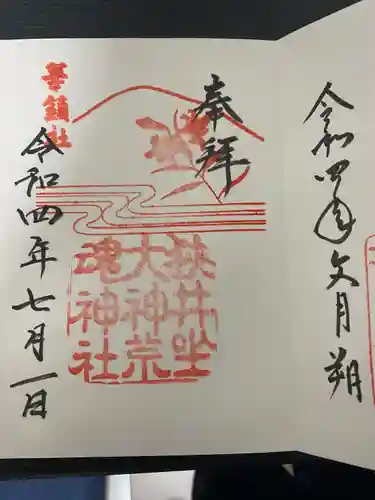 令和四年文月朔
奉拝
狭井坐
大神荒
魂神社
華鎮社
令和四年七月一日